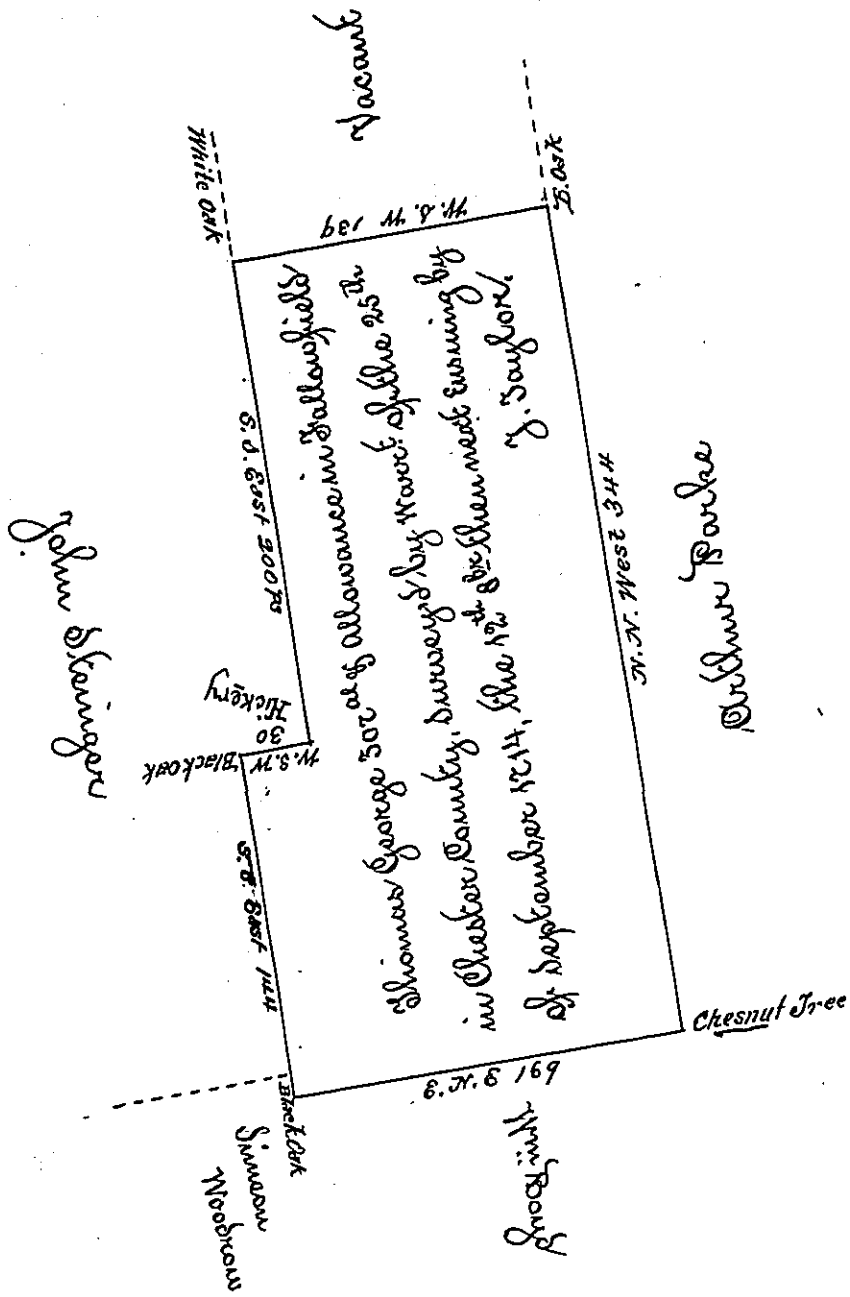 Vacant
White Oak
B. Oak
W. S. W 139
S. S. East 200 Ps
John Steinger
Thomas George 302 as & allowance in Fallowfield
in Chester County, Survey'd by Warrt. of the 25th
of September 1714, the 12th 8br then next Ensuing by
J. Taylor.
N. N. West 344
Arthur Parke
Hickery
30
W. S. W
Black oak
S. S. East 144
Chesnut Tree
E. N. E 169
Black Oak
Simeon
Woodrow